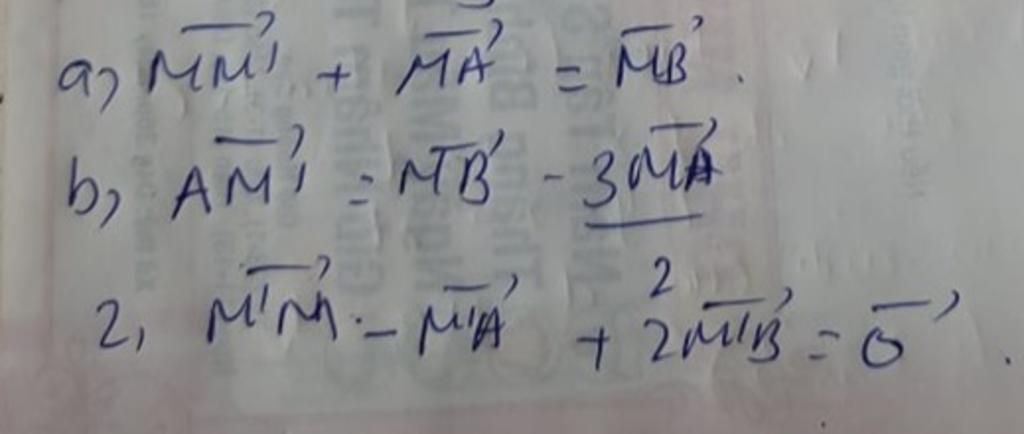 a) MM' + MA = MB.
b) AM' = MB - 3MA
2, M'M - M'A + 2M'B = 0.